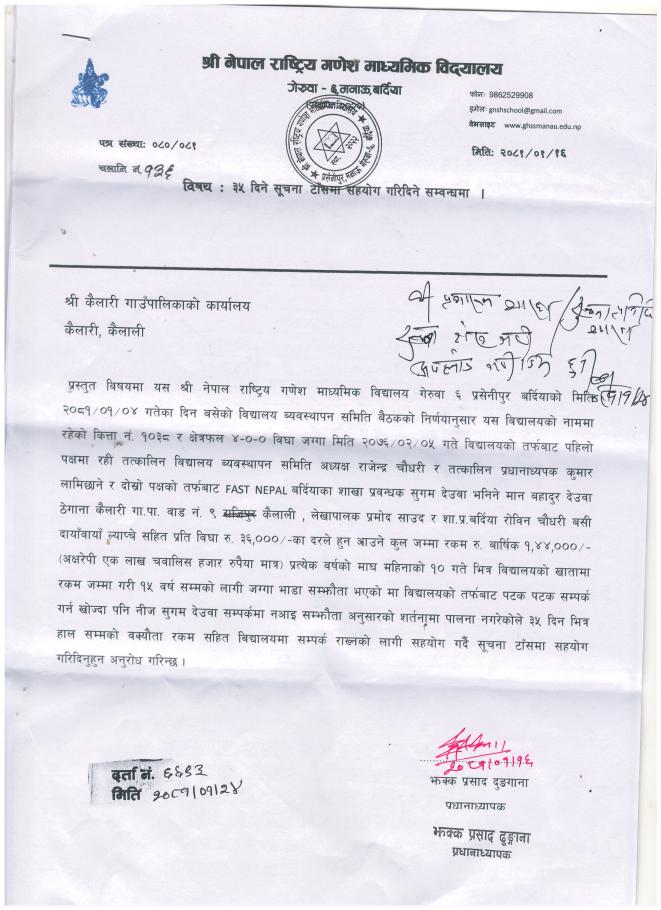 श्री नेपाल राष्ट्रिय गणेश माध्यमिक विद्यालय
गेरुवा - ६ मनाऊ, बर्दिया
फोनः 9862529908
इमेलः gnshschool@gmail.com
वेभसाइट www.ghssmanau.edu.np
पत्र संख्याः ०८०/०८१
मितिः २०८१/०१/१६
चलानि नं. १३६
विषय : ३५ दिने सूचना टाँसमा सहयोग गरिदिने सम्वन्धमा ।
श्री कैलारी गाउँपालिकाको कार्यालय
कैलारी, कैलाली
प्रस्तुत विषयमा यस श्री नेपाल राष्ट्रिय गणेश माध्यमिक विद्यालय गेरुवा ६ प्रसेनीपुर बर्दियाको मिति
२०८१/०१/०४ गतेका दिन बसेको विद्यालय ब्यवस्थापन समिति बैठकको निर्णयानुसार यस विद्यालयको नाममा
रहेको कित्ता नं. १०३८ र क्षेत्रफल ४-०-० विघा जग्गा मिति २०७६/०२/०५ गते विद्यालयको तर्फबाट पहिलो
पक्षमा रही तत्कालिन विद्यालय ब्यवस्थापन समिति अध्यक्ष राजेन्द्र चौधरी र तत्कालिन प्रधानाध्यापक कुमार
लामिछाने र दोस्रो पक्षको तर्फबाट FAST NEPAL बर्दियाका शाखा प्रवन्धक सुगम देउवा भनिने मान बहादुर देउवा
ठेगाना कैलारी गा.पा. वाड नं. ९ कैलाली , लेखापालक प्रमोद साउद र शा.प्र.बर्दिया रोविन चौधरी बसी
दायाँवायाँ ल्याप्चे सहित प्रति विघा रु. ३६,०००/-का दरले हुन आउने कुल जम्मा रकम रु. बार्षिक १,४४,०००/-
(अक्षरेपी एक लाख चवालिस हजार रुपैया मात्र) प्रत्येक वर्षको माघ महिनाको १० गते भित्र विद्यालयको खातामा
रकम जम्मा गरी १५ वर्ष सम्मको लागी जग्गा भाडा सम्झौता भएको मा विद्यालयको तर्फबाट पटक पटक सम्पर्क
गर्न खोज्दा पनि नीज सुगम देउवा सम्पर्कमा नआइ सम्झौता अनुसारको शर्तनामा पालना नगरेकोले ३५ दिन भित्र
हाल सम्मको वक्यौता रकम सहित विद्यालयमा सम्पर्क राख्नको लागी सहयोग गर्दै सूचना टाँसमा सहयोग
गरिदिनुहुन अनुरोध गरिन्छ ।
२०८१/०१/१६
झक्क प्रसाद दुङगाना
प्रधानाध्यापक
झक्क प्रसाद ढुङ्गाना
प्रधानाध्यापक
दर्ता नं. ६६९३
मिति २०८१/०१/२४